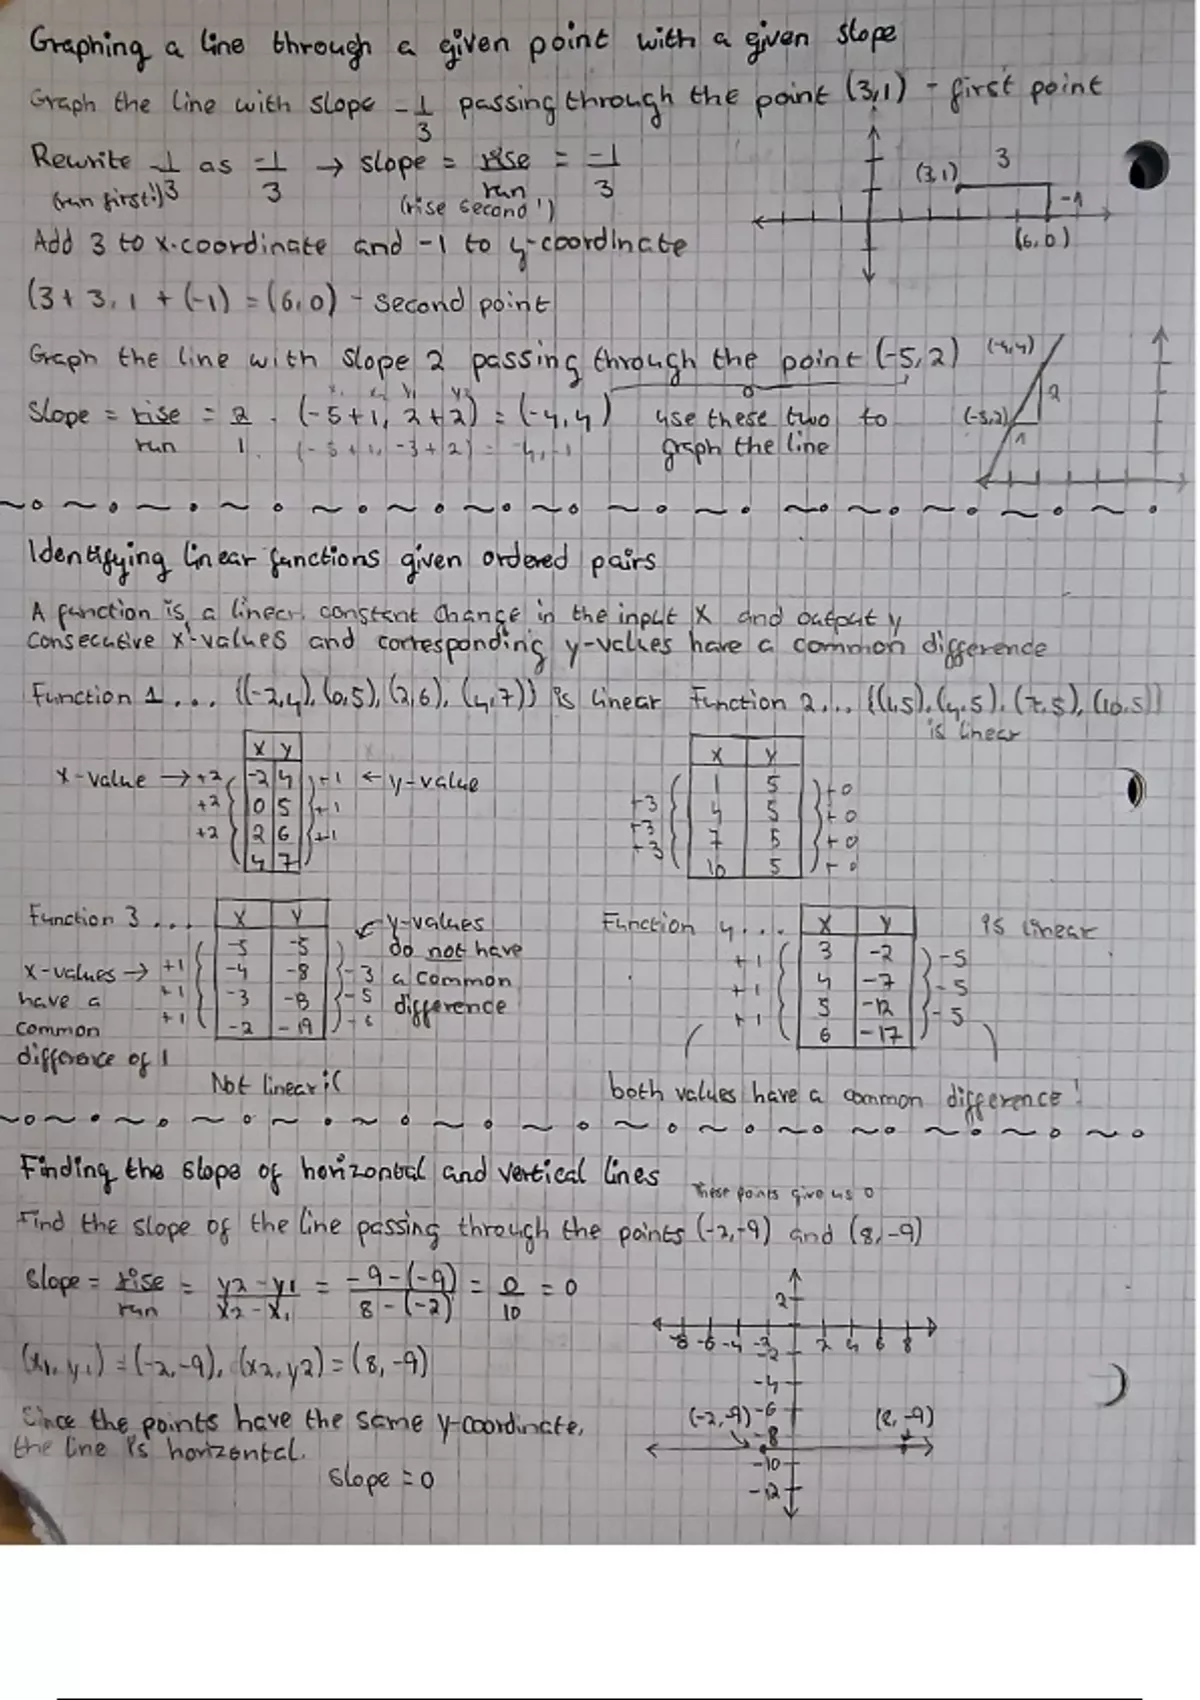 Graphing a line through a given point with a given slope
Graph the line with slope -1/3 passing through the point (3,1) - first point
Rewrite -1/3 as -1/3 → slope = rise/run = -1/3
(run first!) (rise second!)
(3,1) 3 -1 (6,0)
Add 3 to x-coordinate and -1 to y-coordinate
(3+3, 1+(-1) = (6,0) - second point
Graph the line with slope 2 passing through the point (-5,2)
Slope = rise/run = 2/1 . (-5+1, 2+2) = (-4,4) use these two to graph the line
x₁ x₂ y₁ y2
(-5+1, -3+2) = -4,-1
(-4,4) 2 (-5,2) 1
Identifying linear functions given ordered pairs
A function is a linear. constant change in the input x and output y
Consecutive x-values and corresponding y-values have a common difference
Function 1... {(-2,4), (0,5), (2,6), (4,7)} is linear Function 2... {(1,5), (4,5), (7,5), (10,5)}
is linear
x y
x-value → +2 -2 4 +1 ← y-value
+2 0 5 +1
+2 2 6 +1
4 7
x y
1 5 +0
+3 4 5 +0
+3 7 5 +0
+3 10 5 +0
Function 3...
x y
-5 -5
+1 -4 -8 -3
+1 -3 -13 -5
+1 -2 -19 -6
x-values →
have a
common
difference of 1
← y-values
do not have
a common
difference
Not linear :(
Function 4... is linear
x y
+1 3 -2 -5
+1 4 -7 -5
+1 5 -12 -5
6 -17
both values have a common difference!
Finding the slope of horizontal and vertical lines
These points give us 0
Find the slope of the line passing through the points (-2,-9) and (8,-9)
Slope = rise/run = y2-y1/x2-x1 = -9-(-9)/8-(-2) = 0/10 = 0
(x1, y1) = (-2,-9), (x2, y2) = (8, -9)
Since the points have the same y-coordinate,
the line is horizontal.
slope = 0
2
-8 -6 -4 -2 2 4 6 8
-2
-4
(-2,-9) -6 (8,-9)
-8
-10
-12